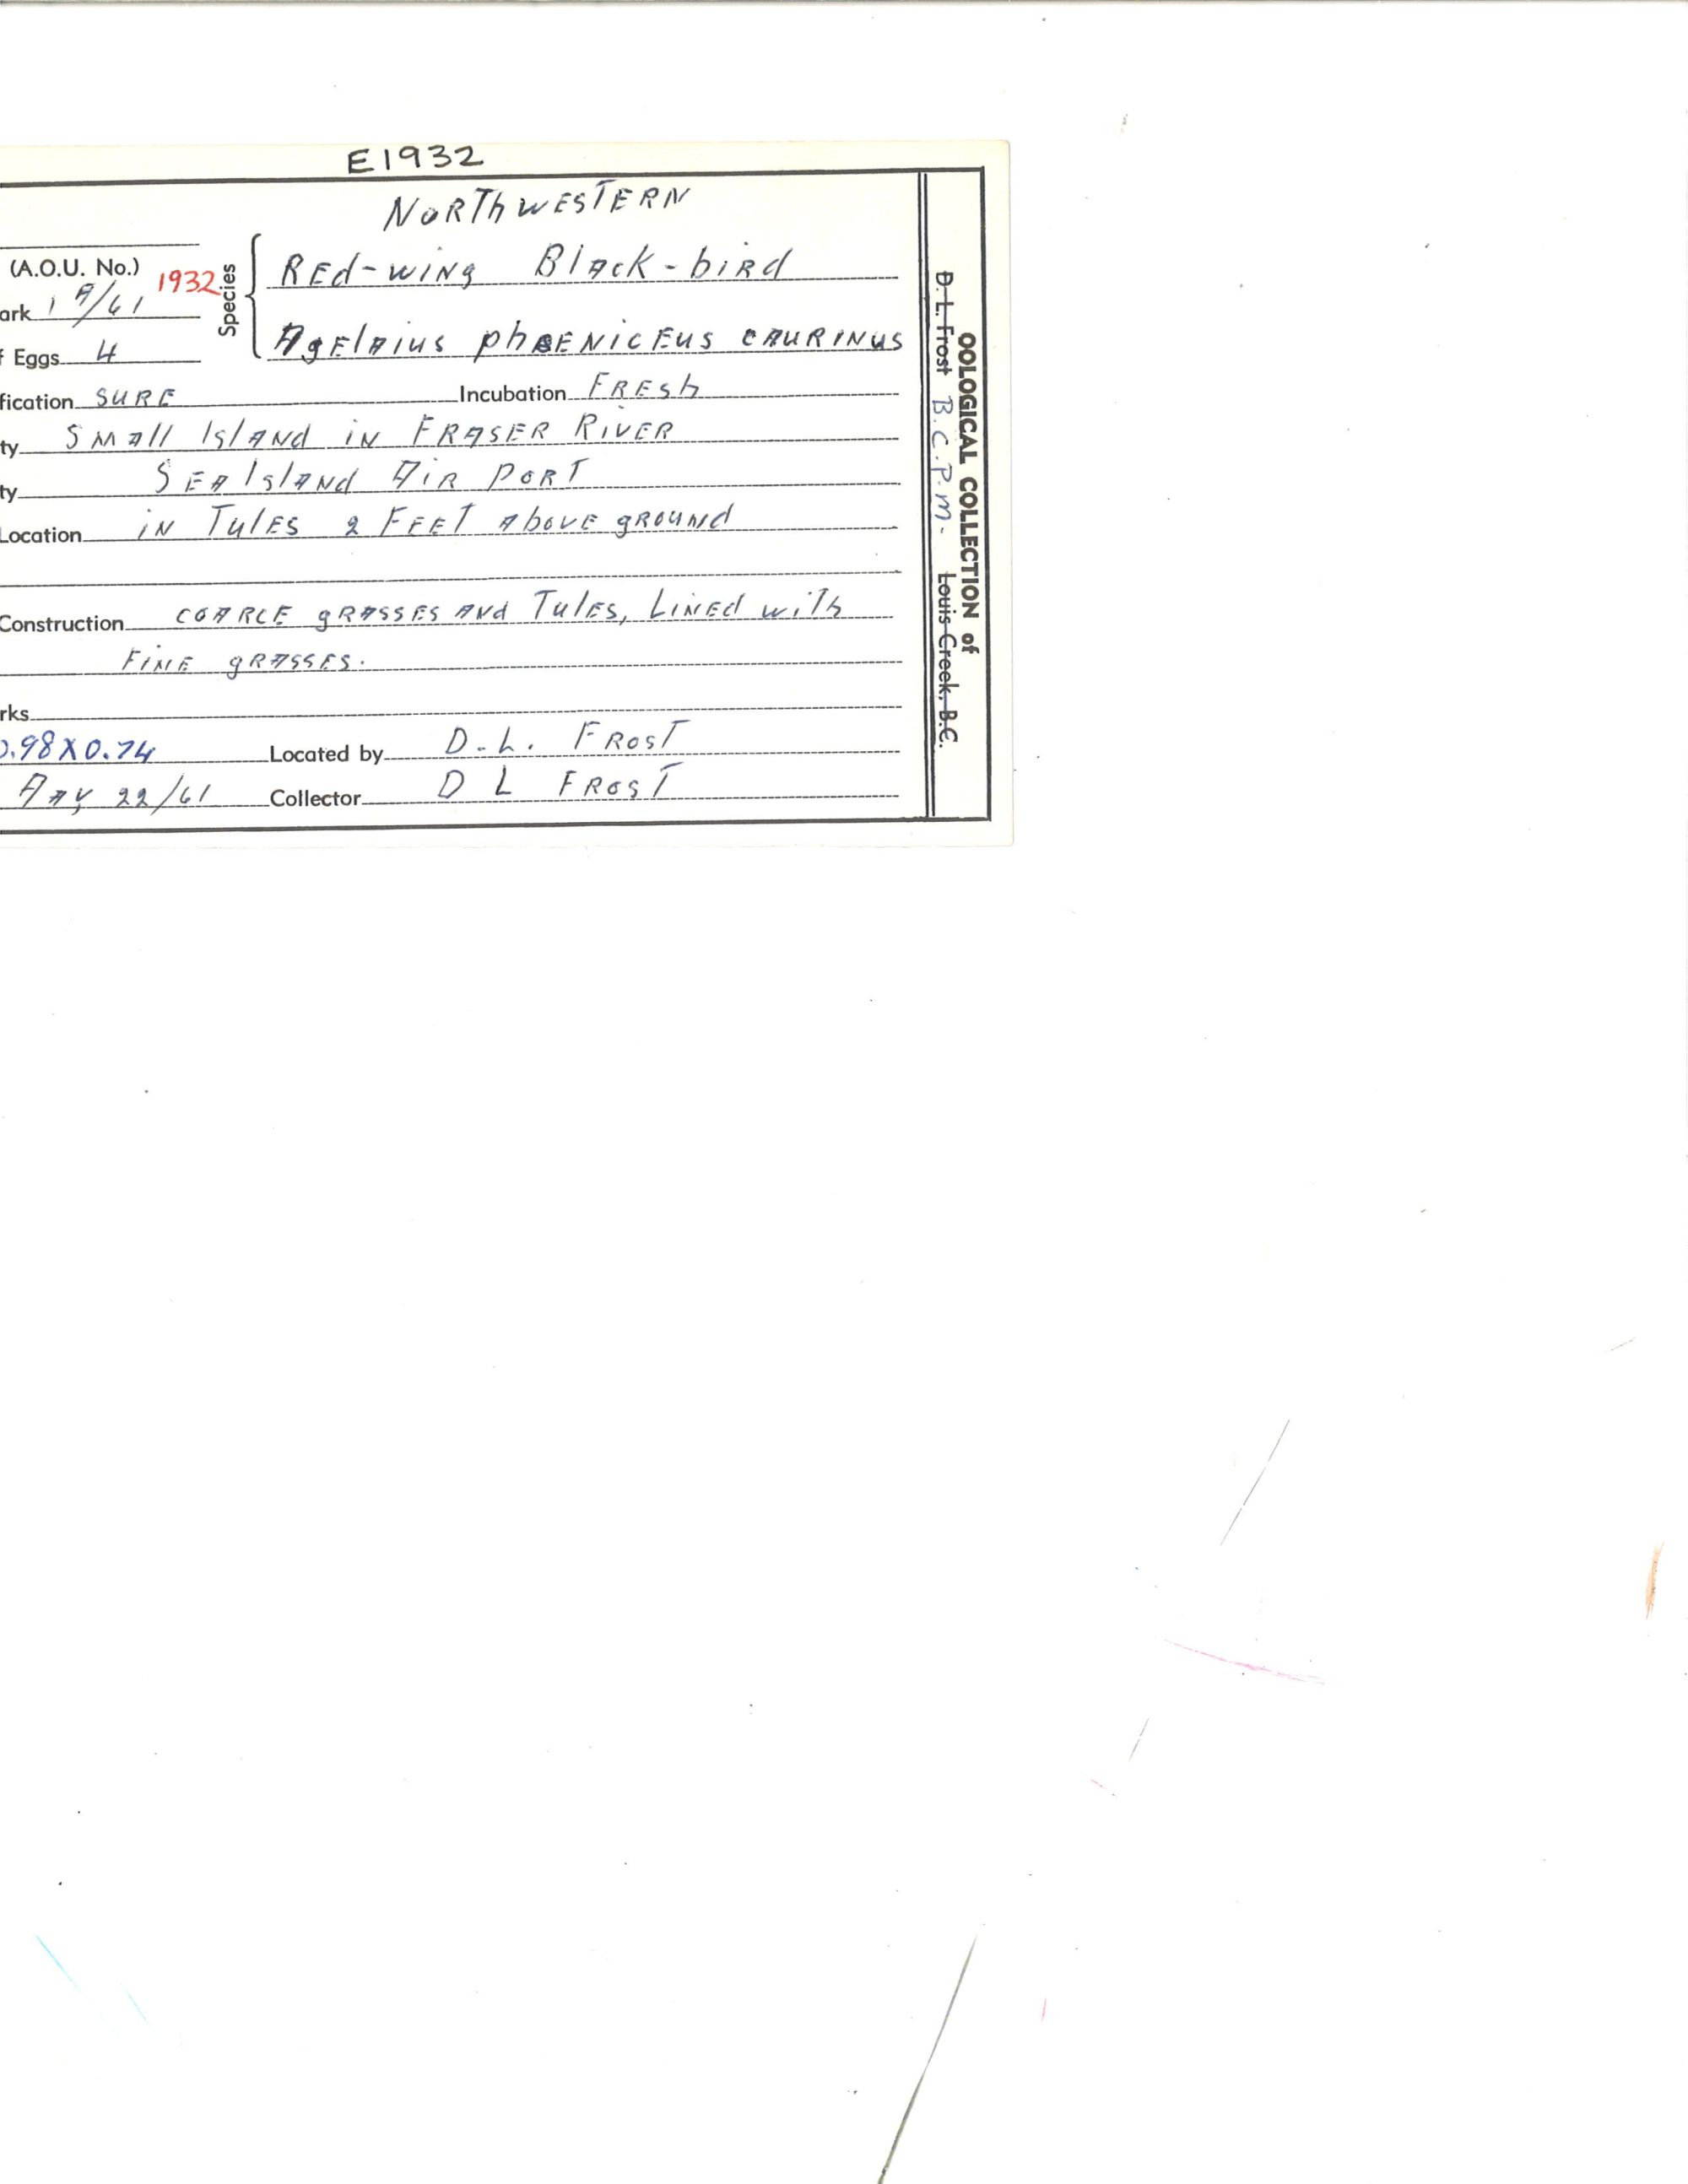 E1932
NORThWESTERN
(A.O.U. No.) 1932 Species REd-wiNg BlAck-biRd
ark 1 A/61
AgElAius phOENICEus CAURINUS
f Eggs 4
fication SURE Incubation FRESh
ty SMAll IslANd iN FRASER RiVER
ty SEA IslANd AiR PORT
Location iN TulES 2 FEET AbovE gROUNd
Construction COARCE gRASSES ANd TulES, LiNEd wiTh
FiNE gRASSES.
rks
0.98X0.74 Located by D.L. FROST
22/61 Collector D L FROST
OOLOGICAL COLLECTION of
D. L. Frost B.C.P.M. Louis Creek, B.C.